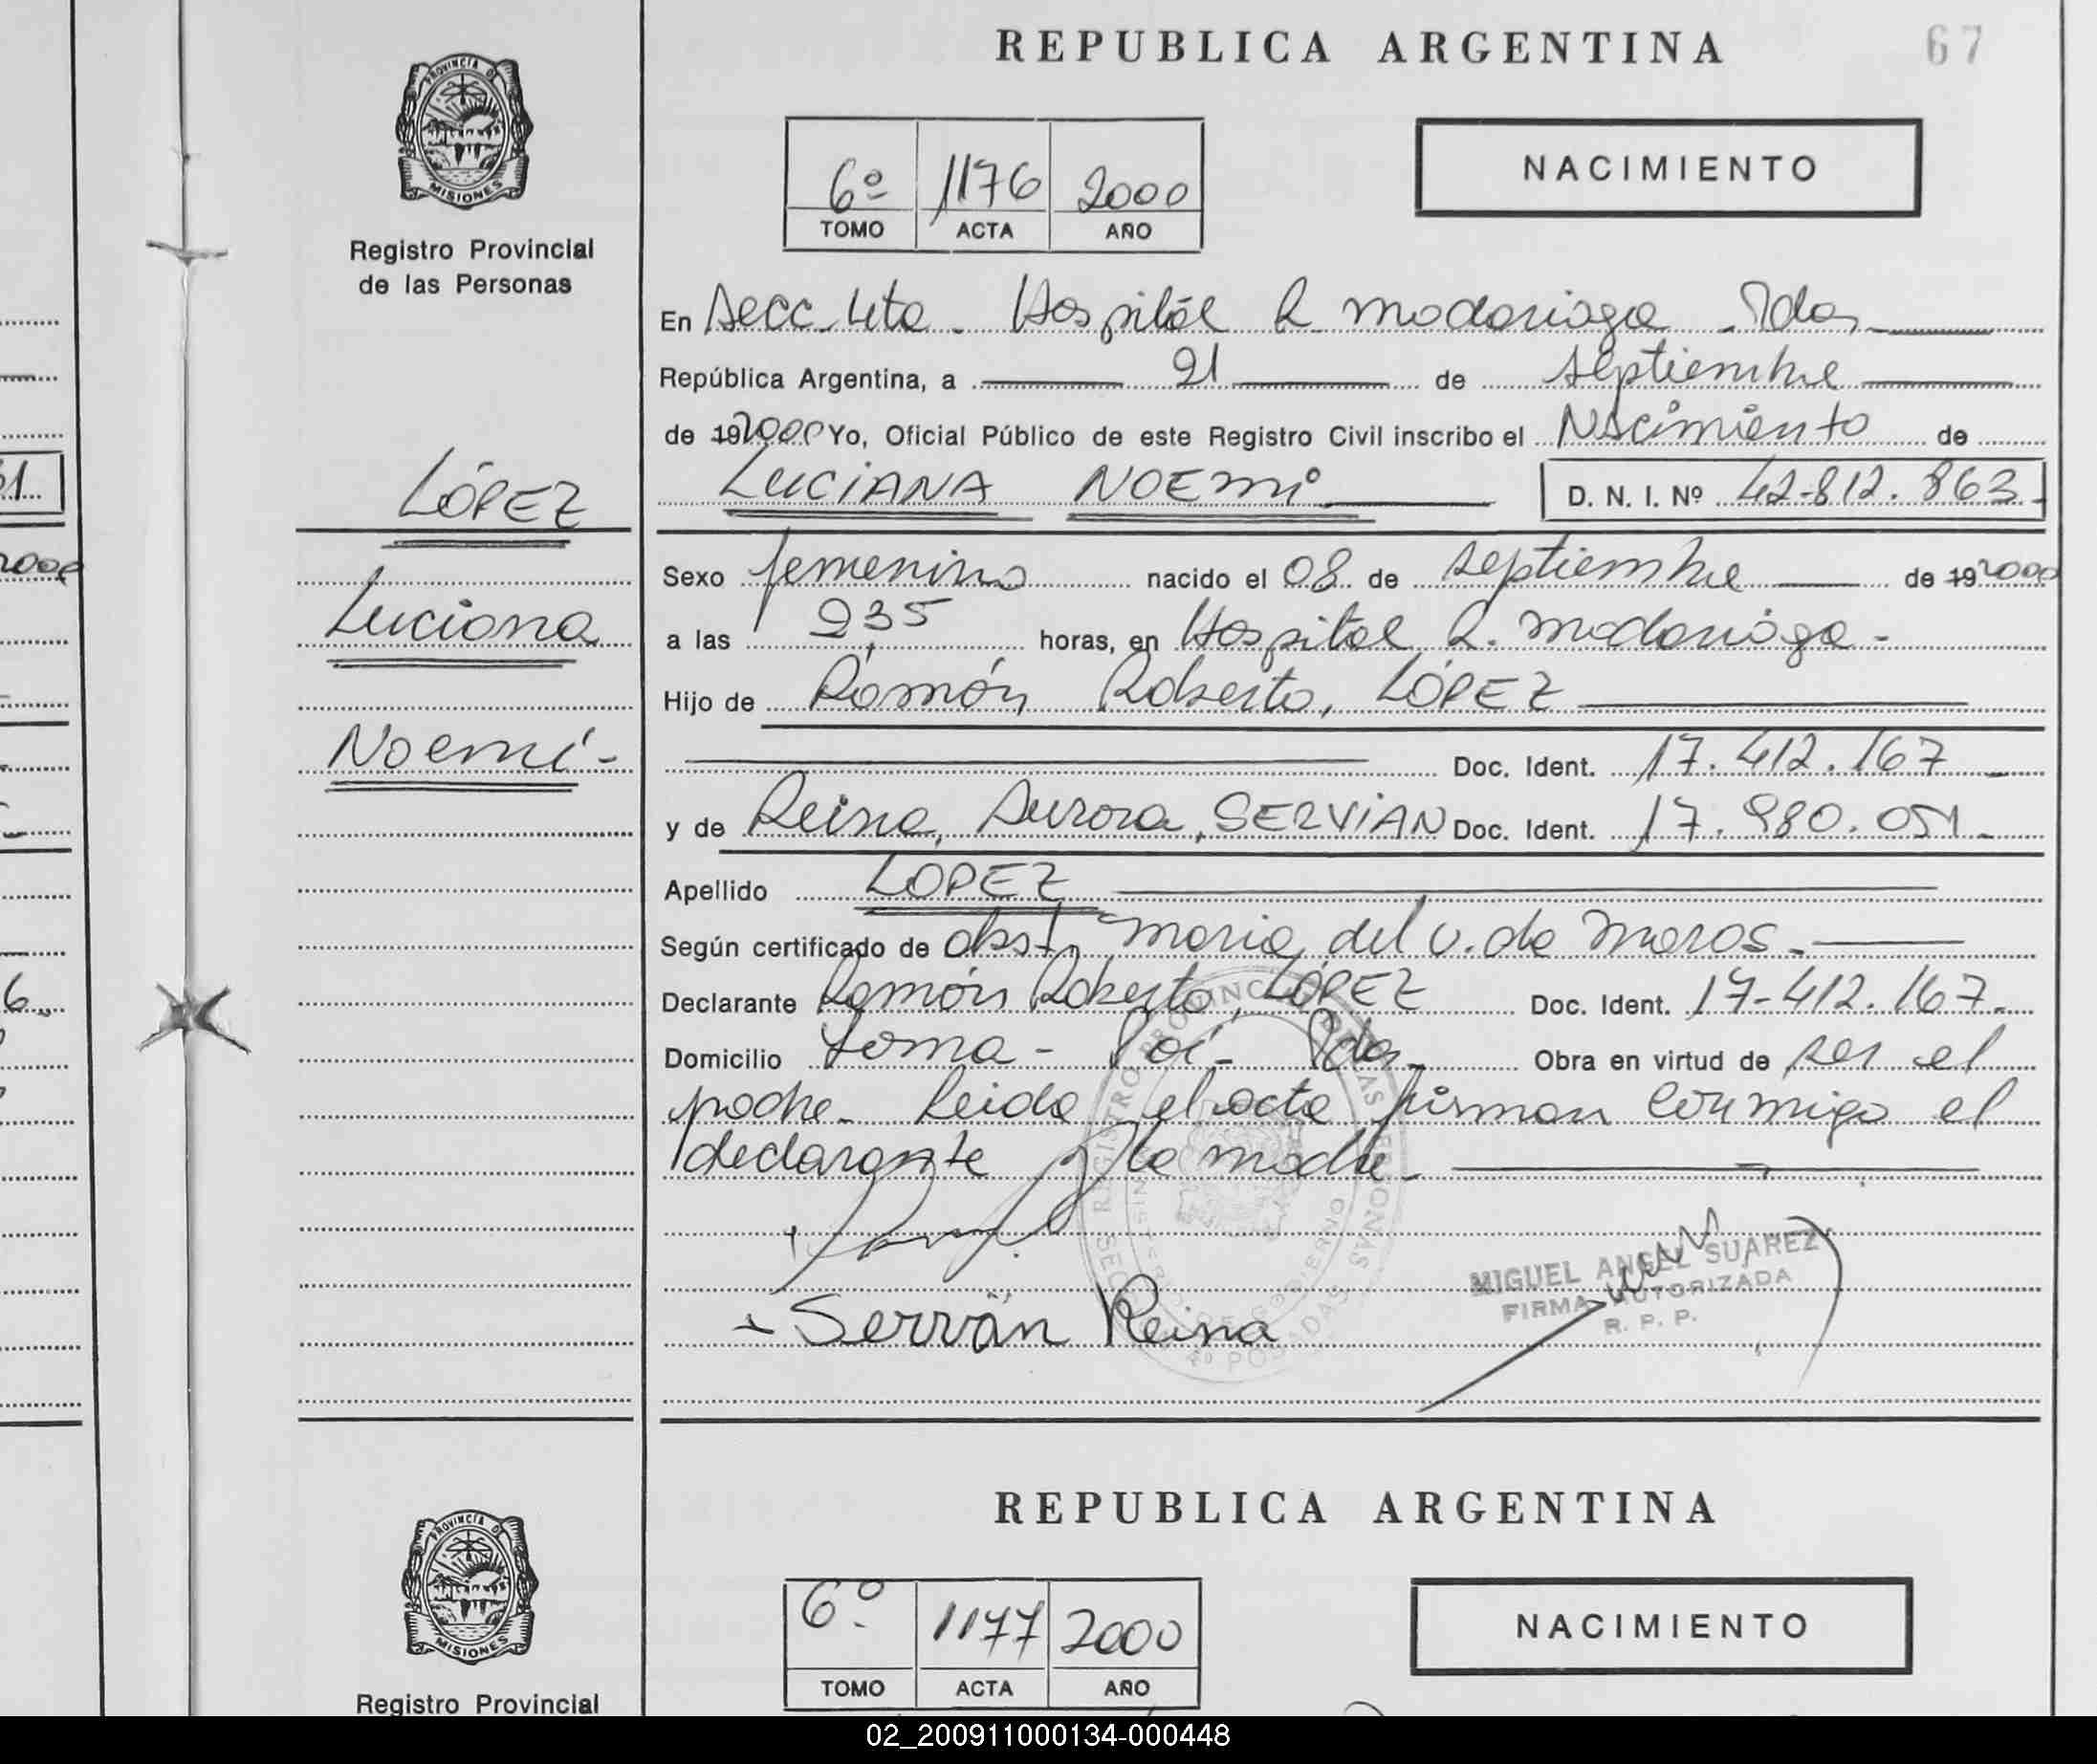 REPUBLICA ARGENTINA
67
PROVINCIA DE
MISIONES
Registro Provincial
de las Personas
6º 1176 2000
TOMO ACTA AÑO
NACIMIENTO
En Secc. 4ta. Hospital R. Madariaga - Pdas
República Argentina, a 21 de septiembre
de 192000 Yo, Oficial Público de este Registro Civil inscribo el Nacimiento de
LUCIANA NOEMI D. N. I. Nº 42-812.863-
LÓPEZ
Luciana
Noemí-
Sexo femenino nacido el 08 de septiembre de 192000
a las 235 horas, en Hospital R. Madariaga-
Hijo de Ramón Roberto, LÓPEZ
Doc. Ident. 17.412.167
y de Reina, Aurora, SERVIAN Doc. Ident. 17.980.051-
Apellido LOPEZ
Según certificado de obst, Maria del v. de
Declarante Ramón Roberto, LÓPEZ Doc. Ident. 17-412.167-
Domicilio Loma - Poí - Pdas - Obra en virtud de ser el
padre. Leida el acta firman conmigo el
declarante y la madre
Servián Reina
MIGUEL ANGEL SUAREZ
FIRMA AUTORIZADA
R. P. P.
REPUBLICA ARGENTINA
PROVINCIA DE
MISIONES
Registro Provincial
6º 1177 2000
TOMO ACTA AÑO
NACIMIENTO
02_200911000134-000448